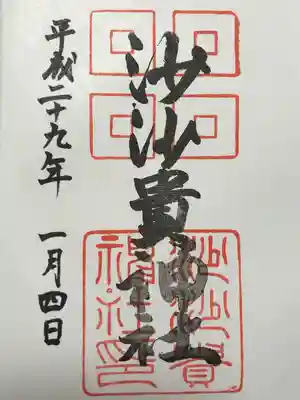 沙沙貴神社
沙沙貴
神社印
平成二十九年 一月四日